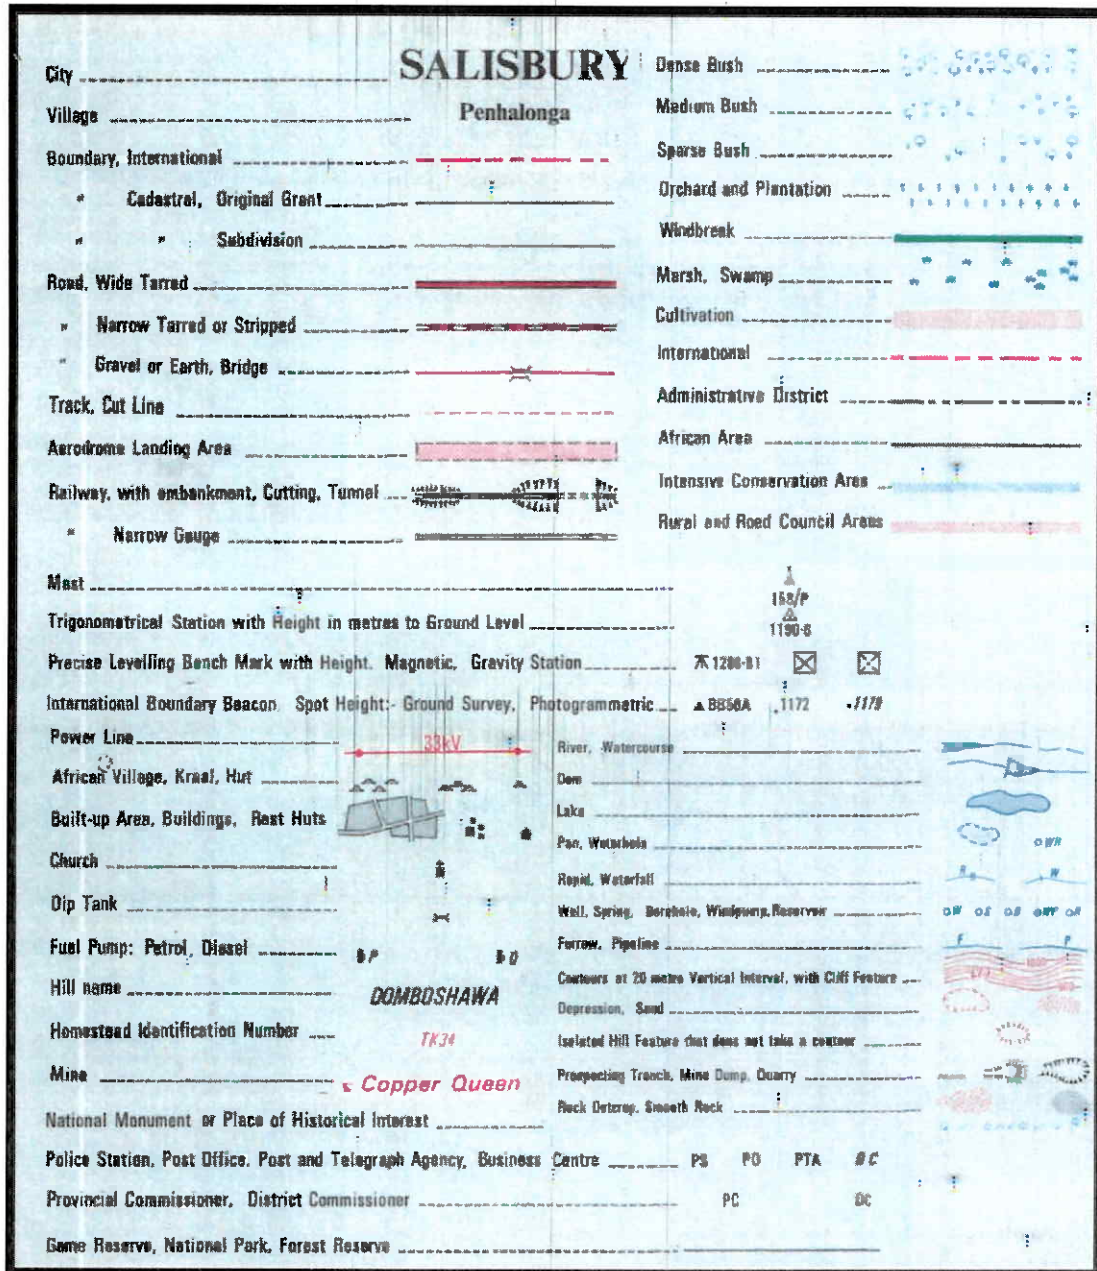 City SALISBURY
Village Penhalonga
Boundary, International
" Cadastral, Original Grant
" " Subdivision
Road, Wide Tarred
" Narrow Tarred or Stripped
" Gravel or Earth, Bridge
Track, Cut Line
Aerodrome Landing Area
Railway, with embankment, Cutting, Tunnel
" Narrow Gauge
Dense Bush
Medium Bush
Sparse Bush
Orchard and Plantation
Windbreak
Marsh, Swamp
Cultivation
International
Administrative District
African Area
Intensive Conservation Area
Rural and Road Council Areas
Mast
158/P
Trigonometrical Station with Height in metres to Ground Level
1190·6
Precise Levelling Bench Mark with Height. Magnetic, Gravity Station 1286·81
International Boundary Beacon. Spot Height:- Ground Survey, Photogrammetric BB58A .1172 .1178
Power Line 33kV
African Village, Kraal, Hut
Built-up Area, Buildings, Rest Huts
Church
Dip Tank
Fuel Pump: Petrol, Diesel P D
Hill name DOMBOSHAWA
Homestead Identification Number TK34
Mine Copper Queen
River, Watercourse
Dam
Lake
Pan, Waterhole WH
Rapid, Waterfall R W
Well, Spring, Borehole, Windpump, Reservoir W S B WP R
Furrow, Pipeline F P
Contours at 20 metre Vertical Interval, with Cliff Feature
Depression, Sand
Isolated Hill Feature that does not take a contour
Prospecting Trench, Mine Dump, Quarry
Rock Outcrop, Smooth Rock
National Monument or Place of Historical Interest
Police Station, Post Office, Post and Telegraph Agency, Business Centre PS PO PTA BC
Provincial Commissioner, District Commissioner PC DC
Game Reserve, National Park, Forest Reserve